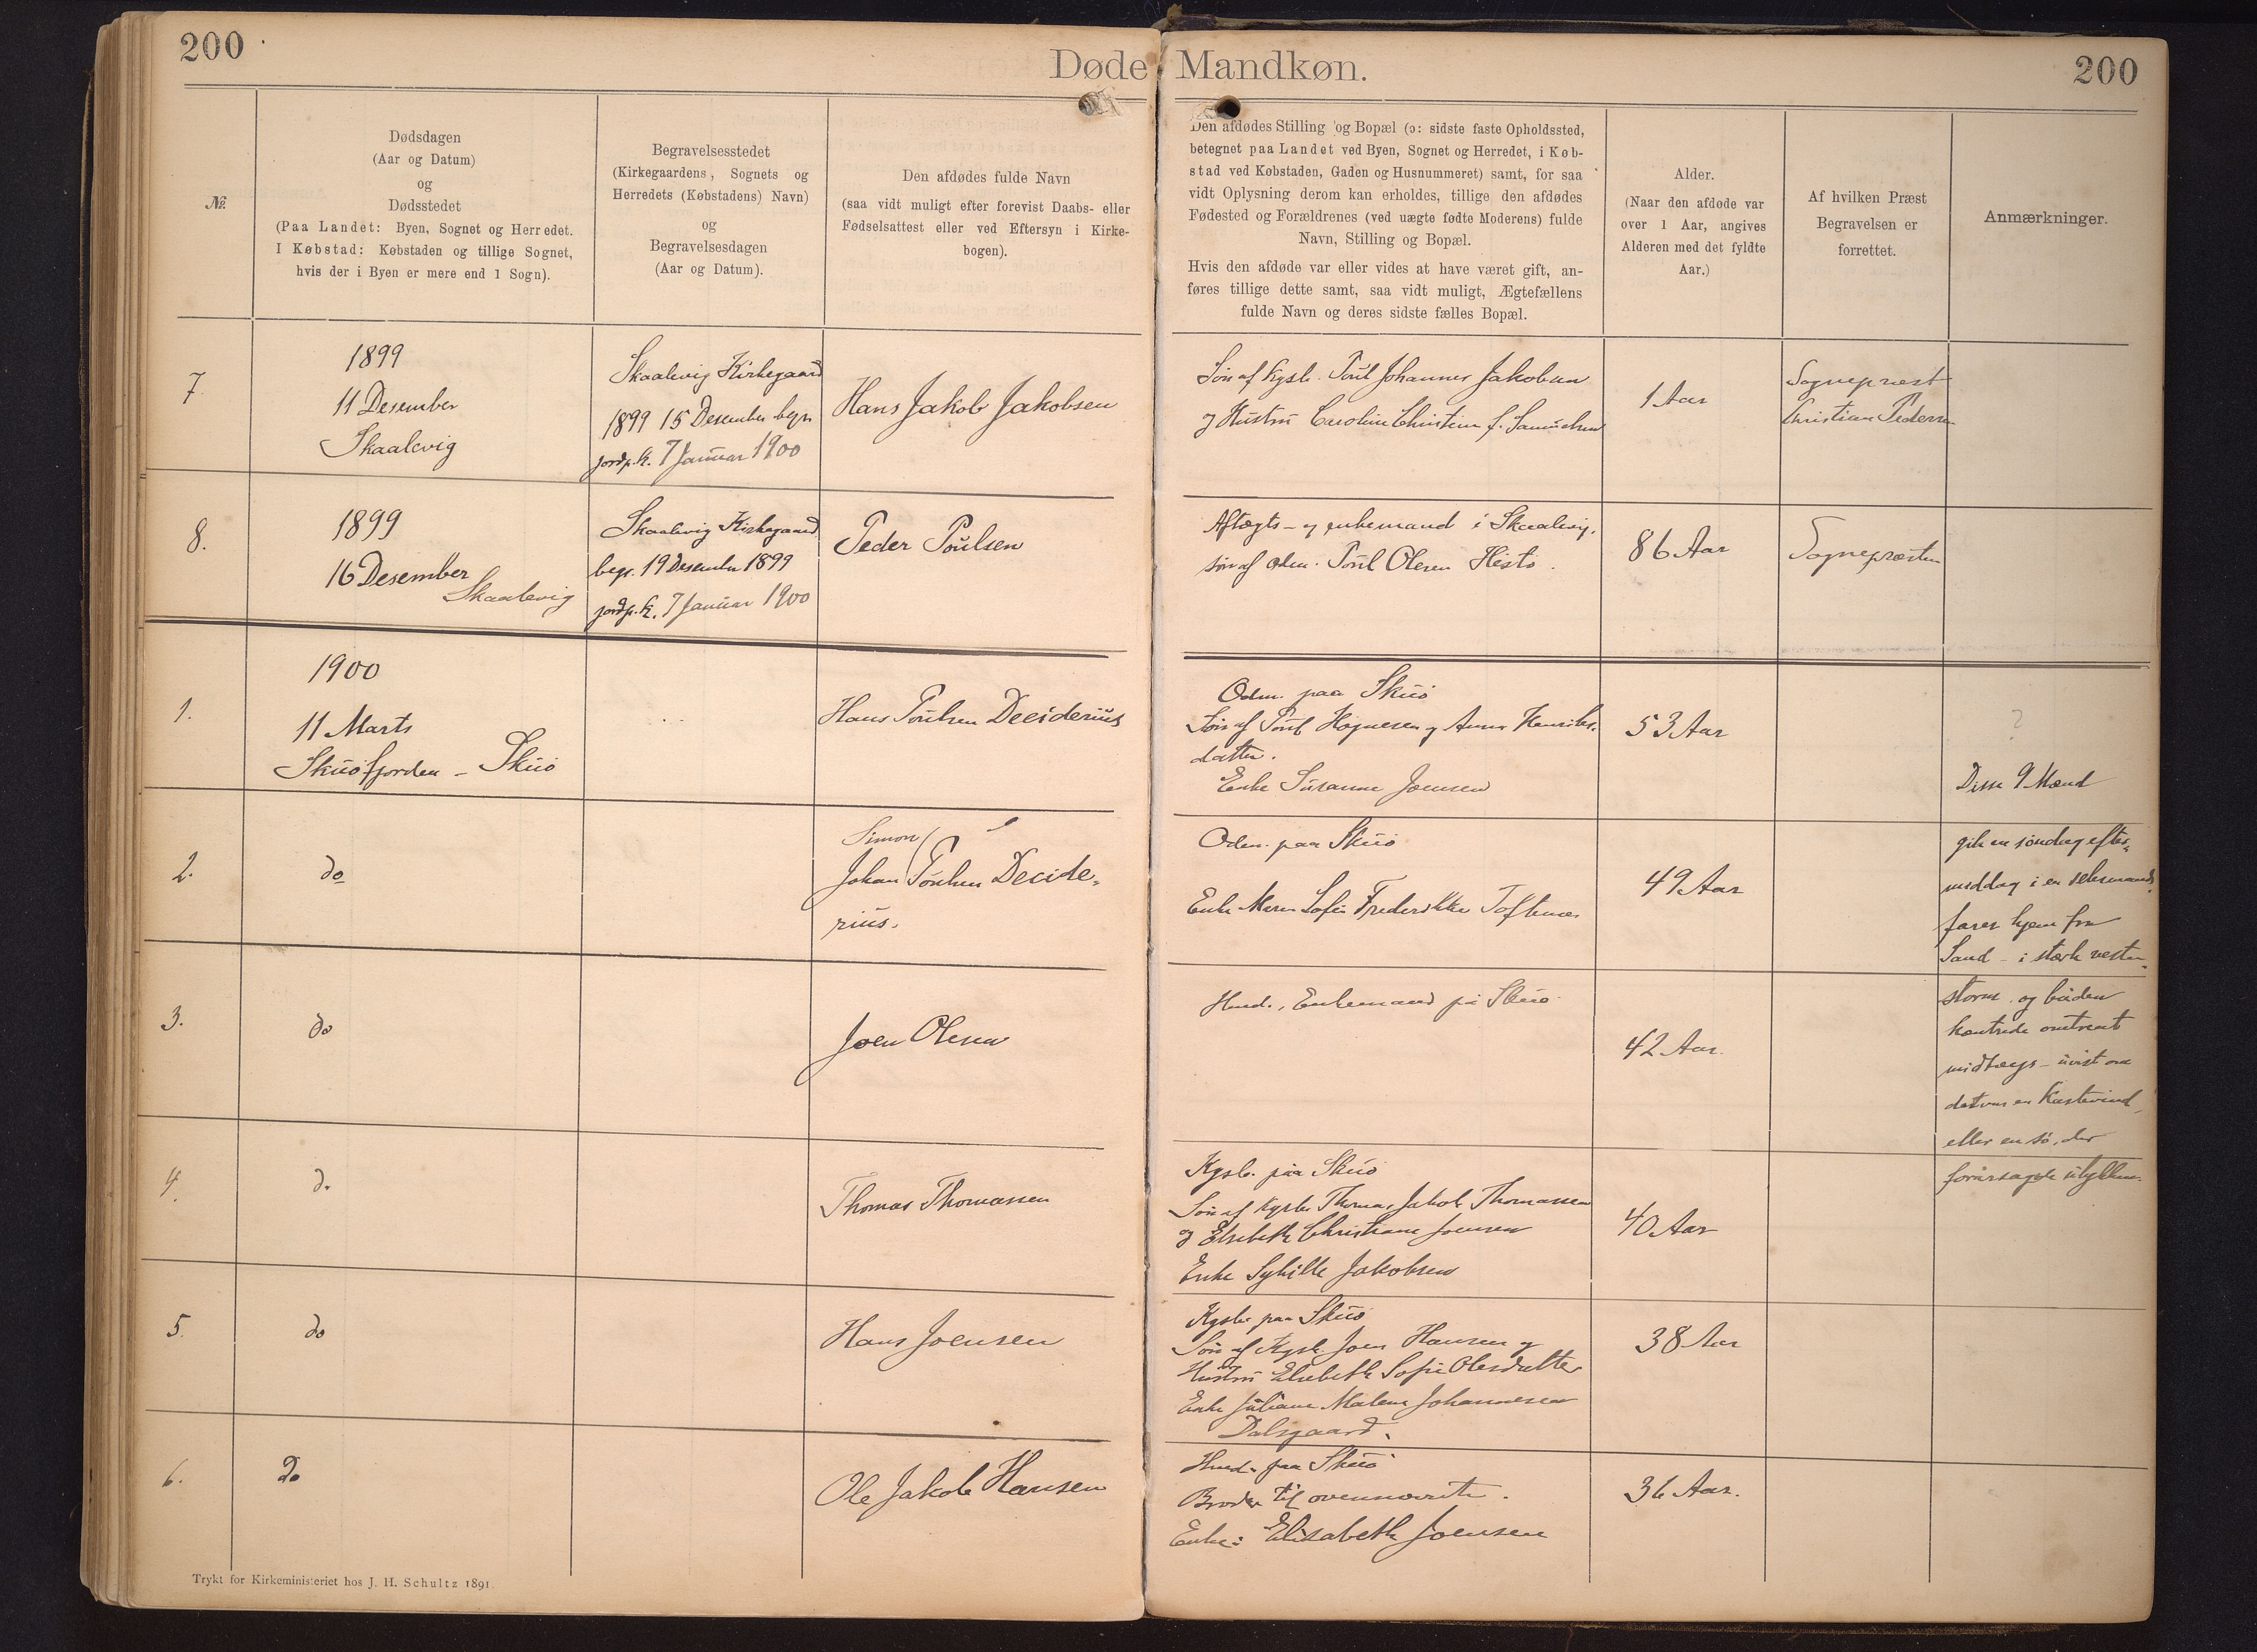 200
Døde Mandkøn.
200
№.
Dødsdagen
(Aar og Datum)
og
Dødsstedet
(Paa Landet: Byen, Sognet og Herredet.
I Købstad: Købstaden og tillige Sognet,
hvis der i Byen er mere end 1 Sogn).
Begravelsesstedet
(Kirkegaardens, Sognets og
Herredets (Købstadens) Navn)
og
Begravelsesdagen
(Aar og Datum).
Den afdødes fulde Navn
(saa vidt muligt efter forevist Daabs- eller
Fødselsattest eller ved Eftersyn i Kirke-
bogen).
Den afdødes Stilling og Bopæl (ɔ: sidste faste Opholdssted,
betegnet paa Landet ved Byen, Sognet og Herredet, i Køb-
stad ved Købstaden, Gaden og Husnummeret) samt, for saa
vidt Oplysning derom kan erholdes, tillige den afdødes
Fødested og Forældrenes (ved uægte fødte Moderens) fulde
Navn, Stilling og Bopæl.
Hvis den afdøde var eller vides at have været gift, an-
føres tillige dette samt, saa vidt muligt, Ægtefællens
fulde Navn og deres sidste fælles Bopæl.
Alder.
(Naar den afdøde var
over 1 Aar, angives
Alderen med det fyldte
Aar.)
Af hvilken Præst
Begravelsen er
forrettet.
Anmærkninger.
7.
1899
11 Desember
Skaalevig
Skaalevig Kirkegaard
1899 15 Desember begr.
jordp.k. 7 Januar 1900
Hans Jakob Jakobsen
Søn af Kgsb. Poul Johannes Jakobsen
og Hustru Caroline Christine f. Samuelsen
1 Aar
Sognepræst
Christian Pedersen
8.
1899
16 Desember
Skaalevig
Skaalevig Kirkegaard
begr. 19 Desember 1899
jordp.k. 7 Januar 1900
Peder Poulsen
Aftægts- og enkemand i Skaalevig.
søn af Odm. Poul Olesen Hestø.
86 Aar
Sognepræsten
1.
1900
11 Marts
Skuöfjorden - Skuö
Hans Poulsen Deciderius
Odm. paa Skuö
Søn af Poul Højnesen og Anna Henriks-
datter.
Enke Susanne Joensen
53 Aar
?
Disse 9 Mænd
2.
do
Simon
Johan Poulsen Decide-
rius.
Odm. paa Skuö
Enke Maren Sofie Frederikke Joftenæs
49 Aar
gik en söndag efter-
middag i en seksmands-
farer hjem fra
Sand - i stærk vesten-
3.
do
Joen Olesen
Husd., Enkemand på Skuö
42 Aar.
storm, og båden
kæntrede omtrent
midtvejs - uvist om
det var en Kastevind,
eller en sö, der
4.
do
Thomas Thomassen
Kgsb. paa Skuö
Søn af Kgsb. Thomas Jakob Thomassen
og Elsebeth Christiane Joensen
Enke Sybille Jakobsen
40 Aar
forårsagede ulykken.
5.
do
Hans Joensen
Kgsb. paa Skuö
Søn af Kgsb. Joen Hansen og
Hustru Elsebeth Sofie Olesdatter
Enke Juliane Malene Johannesen
Dalsgaard.
38 Aar
6.
do
Ole Jakob Hansen
Husd. paa Skuö
Broder til ovennævnte.
Enke: Elisabeth Joensen
36 Aar.
Trykt for Kirkeministeriet hos J. H. Schultz 1891.